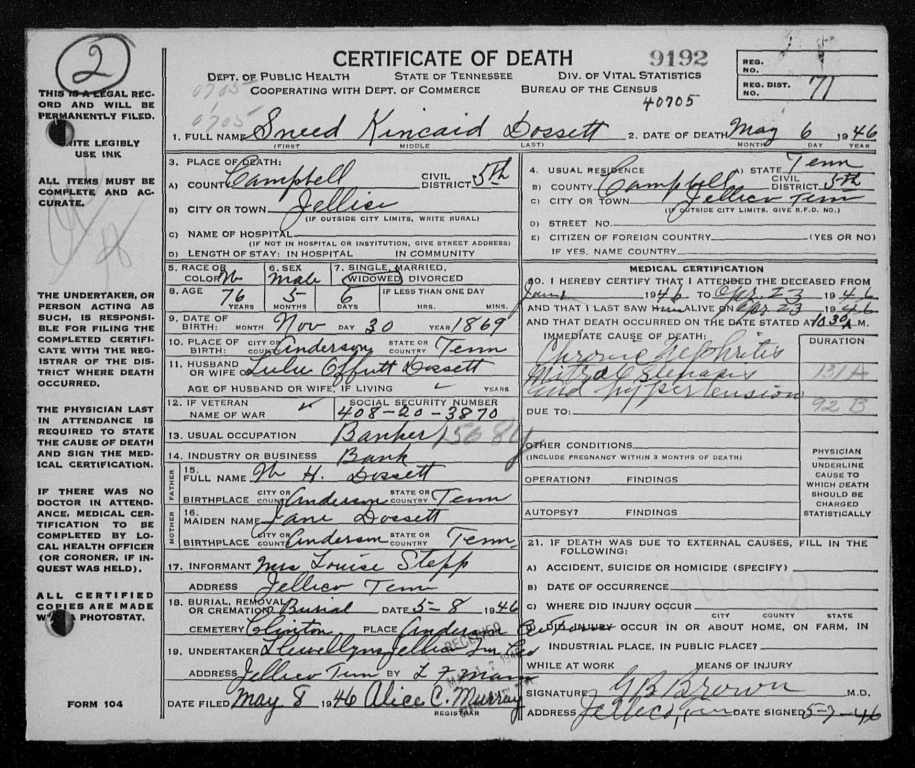 2
CERTIFICATE OF DEATH
9192
DEPT. OF PUBLIC HEALTH STATE OF TENNESSEE DIV. OF VITAL STATISTICS
COOPERATING WITH DEPT. OF COMMERCE BUREAU OF THE CENSUS
40705
REG. NO.
REG. DIST. NO. 71
THIS IS A LEGAL RECORD AND WILL BE PERMANENTLY FILED.
WRITE LEGIBLY USE INK
ALL ITEMS MUST BE COMPLETE AND ACCURATE.
THE UNDERTAKER, OR PERSON ACTING AS SUCH, IS RESPONSIBLE FOR FILING THE COMPLETED CERTIFICATE WITH THE REGISTRAR OF THE DISTRICT WHERE DEATH OCCURRED.
THE PHYSICIAN LAST IN ATTENDANCE IS REQUIRED TO STATE THE CAUSE OF DEATH AND SIGN THE MEDICAL CERTIFICATION.
IF THERE WAS NO DOCTOR IN ATTENDANCE, MEDICAL CERTIFICATION TO BE COMPLETED BY LOCAL HEALTH OFFICER (OR CORONER, IF INQUEST WAS HELD).
ALL CERTIFIED COPIES ARE MADE VIA PHOTOSTAT.
FORM 104
0705
0705
1. FULL NAME Sneed Kincaid Dossett 2. DATE OF DEATH May 6 1946
(FIRST) MIDDLE LAST) MONTH DAY YEAR
3. PLACE OF DEATH:
A) COUNTY Campbell CIVIL DISTRICT 5th
B) CITY OR TOWN Jellico
(IF OUTSIDE CITY LIMITS, WRITE RURAL)
C) NAME OF HOSPITAL
(IF NOT IN HOSPITAL OR INSTITUTION, GIVE STREET ADDRESS)
D) LENGTH OF STAY: IN HOSPITAL IN COMMUNITY
4. USUAL RESIDENCE A) STATE Tenn
B) COUNTY Campbell CIVIL DISTRICT 5th
C) CITY OR TOWN Jellico Tenn
(IF OUTSIDE CITY LIMITS, GIVE R.F.D. NO.)
D) STREET NO.
E) CITIZEN OF FOREIGN COUNTRY (YES OR NO)
IF YES, NAME COUNTRY
5. RACE OR COLOR W 6. SEX Male 7. SINGLE, MARRIED, WIDOWED, DIVORCED
8. AGE 76 YEARS 5 MONTHS 6 DAYS IF LESS THAN ONE DAY HRS. MINS.
9. DATE OF BIRTH: MONTH Nov DAY 30 YEAR 1869
10. PLACE OF BIRTH: CITY OR COUNTY Anderson STATE OR COUNTRY Tenn
11. HUSBAND OR WIFE OF Lulie Offutt Dossett
AGE OF HUSBAND OR WIFE, IF LIVING YEARS
12. IF VETERAN NAME OF WAR SOCIAL SECURITY NUMBER 408-20-3870
13. USUAL OCCUPATION Banker
14. INDUSTRY OR BUSINESS Bank
FATHER
15. FULL NAME W H. Dossett
BIRTHPLACE CITY OR COUNTY Anderson STATE OR COUNTRY Tenn
MOTHER
16. MAIDEN NAME Jane Dossett
BIRTHPLACE CITY OR COUNTY Anderson STATE OR COUNTRY Tenn.
17. INFORMANT Mrs Louise Stepp
ADDRESS Jellico Tenn
18. BURIAL, REMOVAL OR CREMATION Burial DATE 5-8 1946
CEMETERY Clinton PLACE Anderson Co Tenn
19. UNDERTAKER Llewellyn Jellico Fun Co
ADDRESS Jellico Tenn BY L F Mann
DATE FILED May 8 1946 Alice C. Murray
REGISTRAR
RECEIVED
MEDICAL CERTIFICATION
20. I HEREBY CERTIFY THAT I ATTENDED THE DECEASED FROM
Jan 1 1946 TO Apr. 23 1946
AND THAT I LAST SAW Him ALIVE ON Apr 23 1946
AND THAT DEATH OCCURRED ON THE DATE STATED AT 10 30 A.M.
IMMEDIATE CAUSE OF DEATH: DURATION
Chronic Nephritis
Mitral Stenosis 131A
and hypertension
DUE TO: 92 B
OTHER CONDITIONS
(INCLUDE PREGNANCY WITHIN 3 MONTHS OF DEATH)
OPERATION? FINDINGS
AUTOPSY? FINDINGS
PHYSICIAN
UNDERLINE CAUSE TO WHICH DEATH SHOULD BE CHARGED STATISTICALLY
21. IF DEATH WAS DUE TO EXTERNAL CAUSES, FILL IN THE FOLLOWING:
A) ACCIDENT, SUICIDE OR HOMICIDE (SPECIFY)
B) DATE OF OCCURRENCE
C) WHERE DID INJURY OCCUR
CITY COUNTY STATE
D) DID INJURY OCCUR IN OR ABOUT HOME, ON FARM, IN INDUSTRIAL PLACE, IN PUBLIC PLACE?
WHILE AT WORK MEANS OF INJURY
SIGNATURE G B Brown M.D.
ADDRESS Jellico, Tenn DATE SIGNED 5-7-46